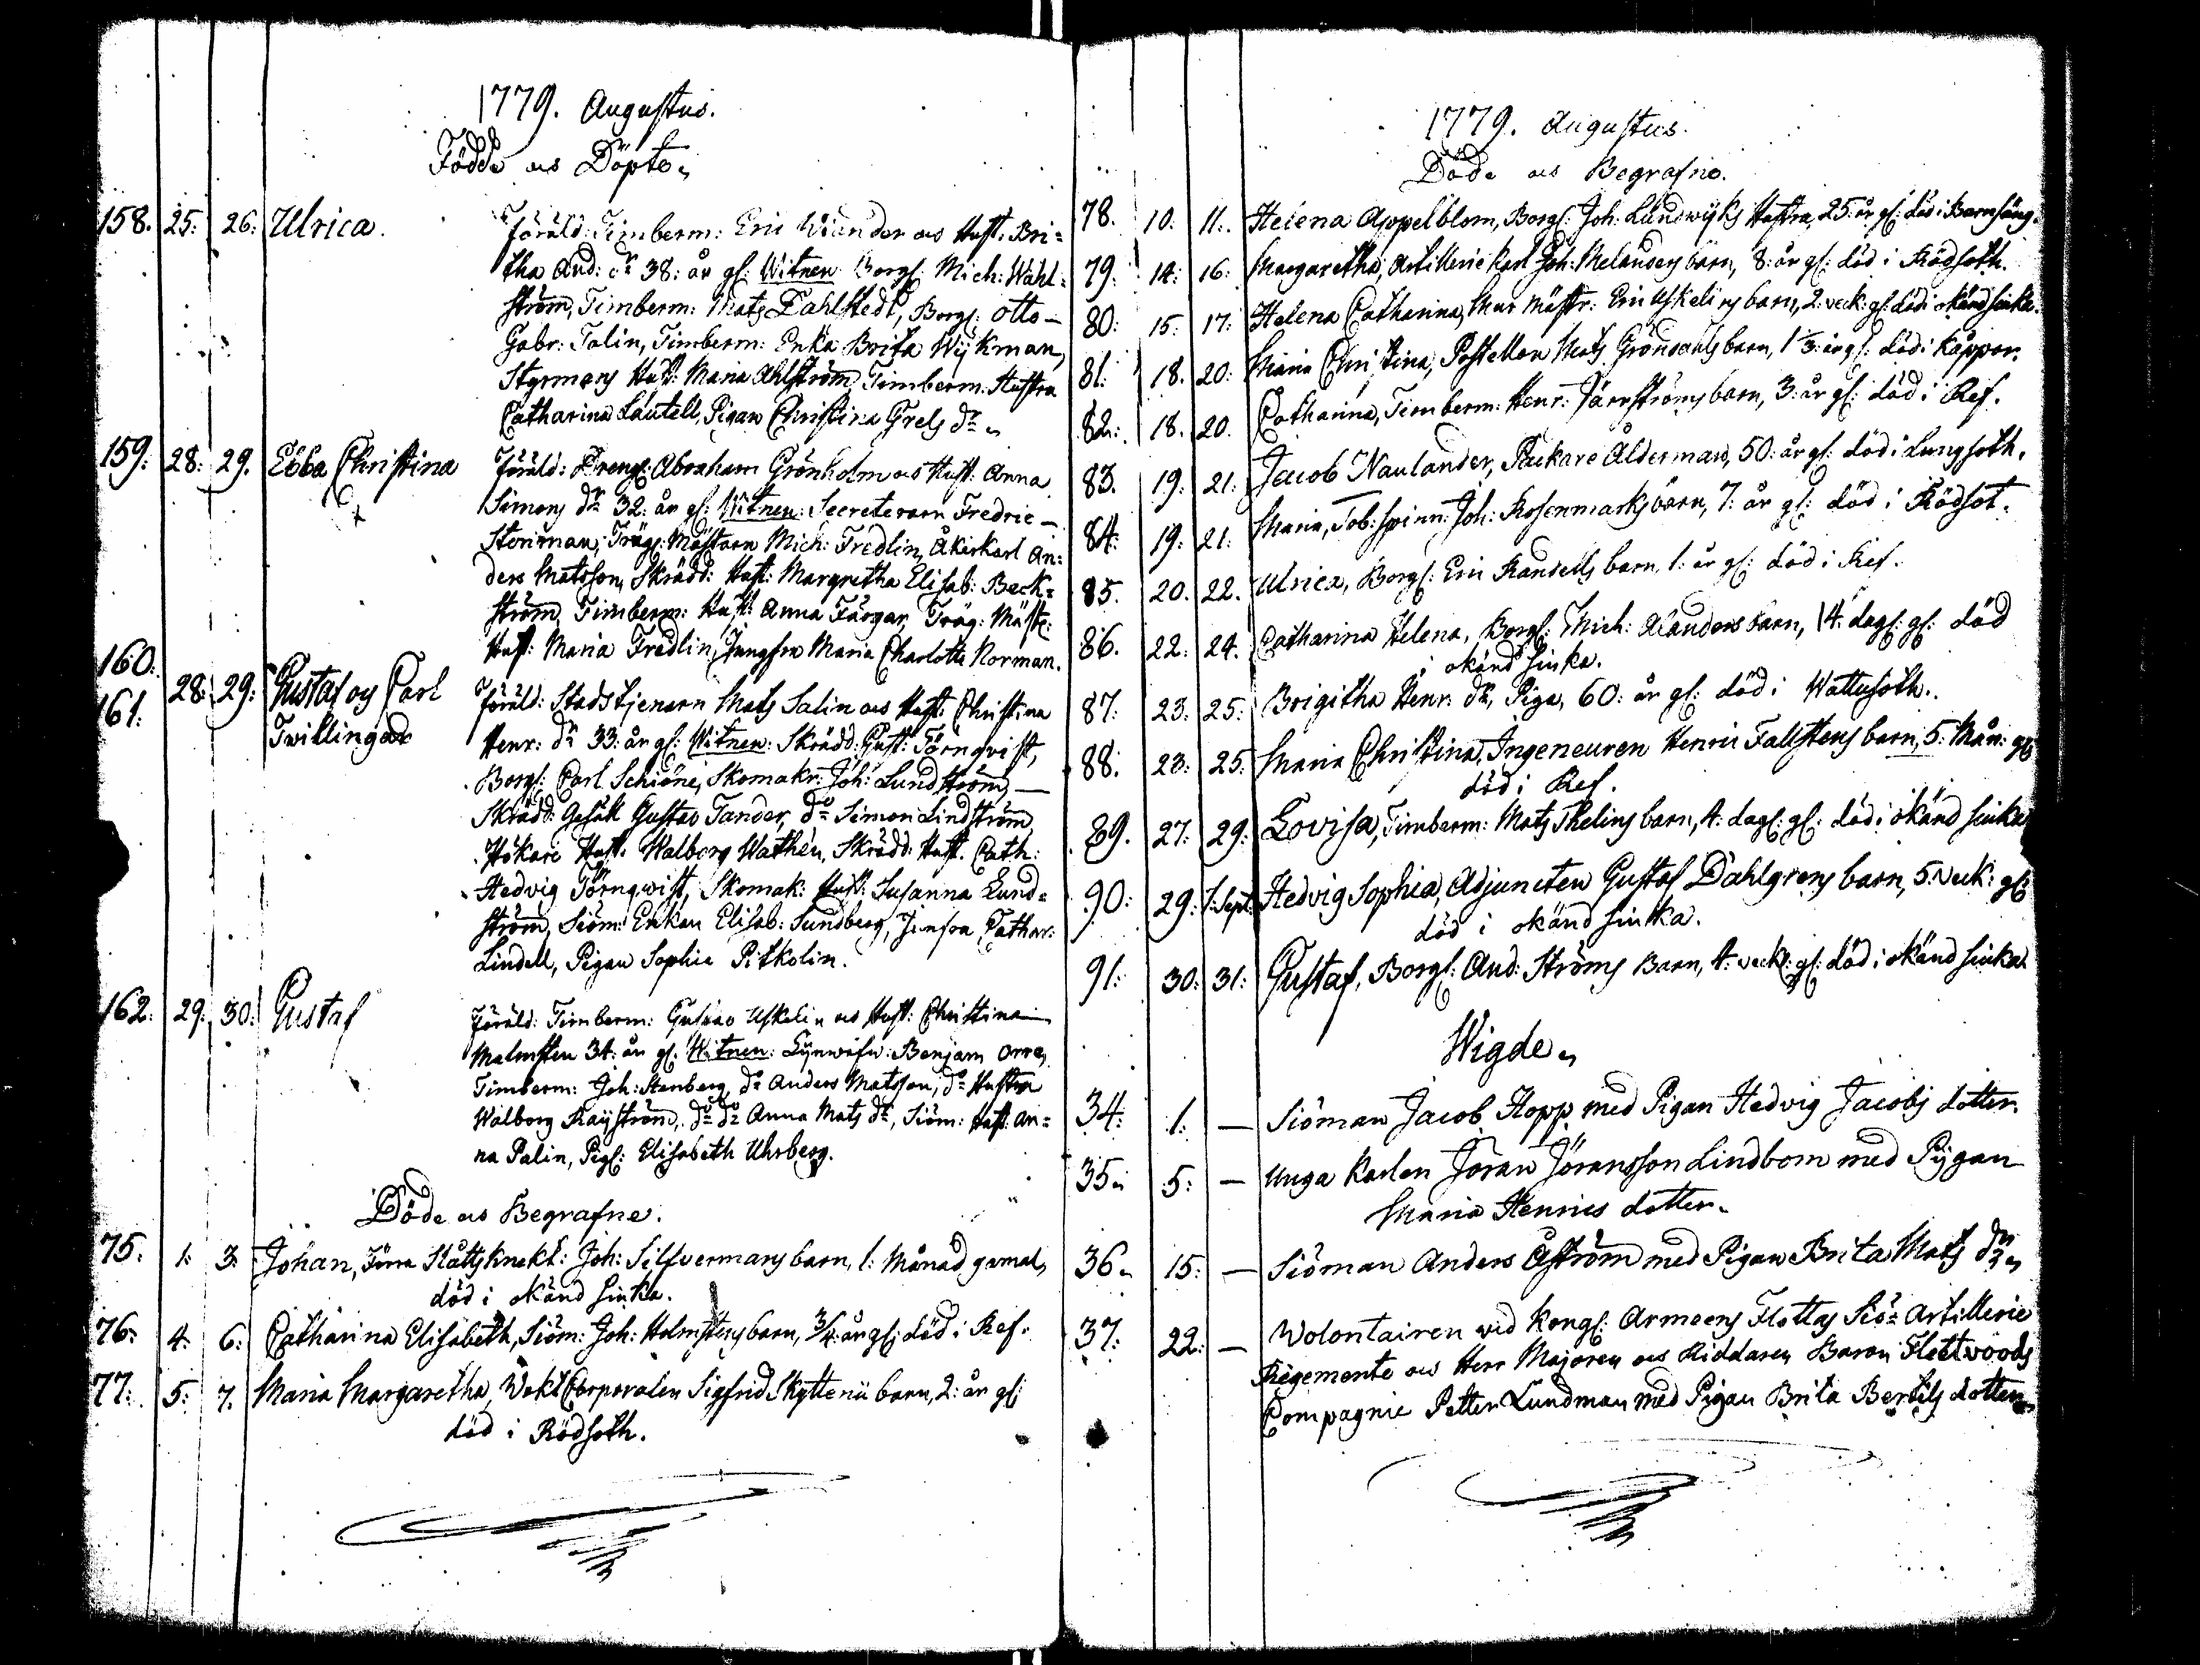 1779. Augustus.
Födde och Döpte.
158. 25: 26: Ulrica. Föräld: Timberm: Eric Wiander och Hust. Bri=
tha And: dr 38: år gl: Witnen: Borgl: Mich: Wahl=
ström, Timberm: Mats Dahlstedt, Borgl: Otto
Gabr: Talin, Timberm: Enka Brita Wijkman,
Styrmans Hust: Maria Ahlström, Timberm: Hustra
Catharina Lautell, Pigan Christina Grels dr
159: 28: 29. Ebba Christina Föräld: Drengl: Abraham Grönholm och Hust: Anna
Simons dr 32: år gl: Witnen: Secreteraren Fredric
Stenman, Trägl: Mästaren Mich: Fredlin, Åkarkarl An:
ders Matsson, Skrädd: Hust: Margretha Elisab: Beck=
ström, Timberm: Hust: Anna Färgar, Träg: Mäst:
Hust: Maria Fredlin, Jungfru Maria Charlotte Norman.
160:
161: 28: 29: Gustaf och Carl Föräld: Stadstjenaren Mats Salin och Hust: Christina
Twillingar Henr: dr 33: år gl: Witnen: Skrädd: Gust: Törnqvist,
Borgl: Carl Schiöne, Skomakr: Joh: Lundström,
Skrädd: Gesäll Gustav Tander, do Simon Lindström
Hökare Hust: Walborg Wathén, Skrädd: Hust. Cath:
Hedvig Törnqwist, Skomak: Hust: Susanna Lund=
ström, Siöm: Enkan Elisab: Sundberg, Jumfru Cathar:
Lindell, Pigan Sophia Pitkolin.
162: 29: 30: Gustaf Föräld: Timberm: Gustav Uskelin och Hust: Christina
Malmsten 34: år gl: Witnen: Benjam Orre,
Timberm: Joh: Stenberg, do Anders Matsson, do Hustra
Walborg Rayström, do do Anna Mats dr, Siöm: Hust: An=
na Palin, Pigl: Elisabeth Uhrberg.
Döde och Begrafne.
75. 1: 3: Johan, Förra Slåttsknekt: Joh: Silfvermans barn, 1: Månad gamal,
död i okänd siuka.
76: 4: 6: Catharina Elisabeth, Siöm: Joh: Holmstens barn, 3/4: år gl: död i Ref.
77: 5: 7. Maria Margaretha, Wakt Corporalen Sigfrid Skyttenii barn, 2: år gl:
död i Rödsoth.
1779. Augustus.
Döde och Begrafne.
78. 10: 11. Helena Appelblom, Borgl: Joh: Lundwijks Hustra, 25: år gl: död i Barnsäng.
79: 14: 16: Margaretha, Artillerie Karl Joh: Melanders barn, 8: år gl: död i Rödsoth.
80: 15: 17: Helena Catharina, Mur Mästr: Eric Uskelins barn, 2: veck: gl: död i okänd siuka.
81: 18. 20: Maria Christina, Mats Gröndahls barn, 1 1/3: år gl: död i Kåppor.
82: 18. 20. Catharina, Timberm: Henr: Järnströms barn, 3: år gl: död i Ref.
83. 19: 21: Jacob Naulander, Packare Ålderman, 50: år gl: död i Lungsoth.
84: 19: 21: Maria, Tob: spinn: Joh: Rosenmarks barn, 7: år gl: död i Rödsot.
85. 20. 22. Ulrica, Borgl: Eric Ransells barn, 1: år gl: död i Ref.
86. 22: 24. Catharina Helena, Borgl: Mich: Xanders barn, 14: dagl: gl: död
i okänd siuka.
87: 23: 25: Brigitha Henr: dr, Piga, 60: år gl: död i Wattusoth.
88. 23: 25: Maria Christina, Ingeneuren Henric Fallstens barn, 5: Mån: gl:
död i Ref.
89. 27: 29: Lovisa, Timberm: Mats Thelins barn, 4: dagl: gl: död i okänd siuka
90: 29: 1: Sept: Hedvig Sophia, Adjuncten Gustaf Dahlgrens barn, 5: Veck: gl:
död i okänd siuka.
91: 30: 31: Gustaf, Borgl: And: Ströms Barn, 4: veck: gl: död i okänd siuka
Wigde.
34: 1: — Siöman Jacob Hopp med Pigan Hedvig Jacobs dotter.
35. 5: — Unga Karlen Jöran Jöransson Lindbom med Pigan
Maria Henrics dotter.
36. 15: — Siöman Anders Åström med Pigan Brita Mats dr
37: 22: — Wolontairen wid Kongl: Armeens Flottas Siö Artillerie
Regemente och Herr Majoren och Riddaren Baron Fleetwoods
Compagnie Petter Lundman med Pigan Brita Bertils dotter